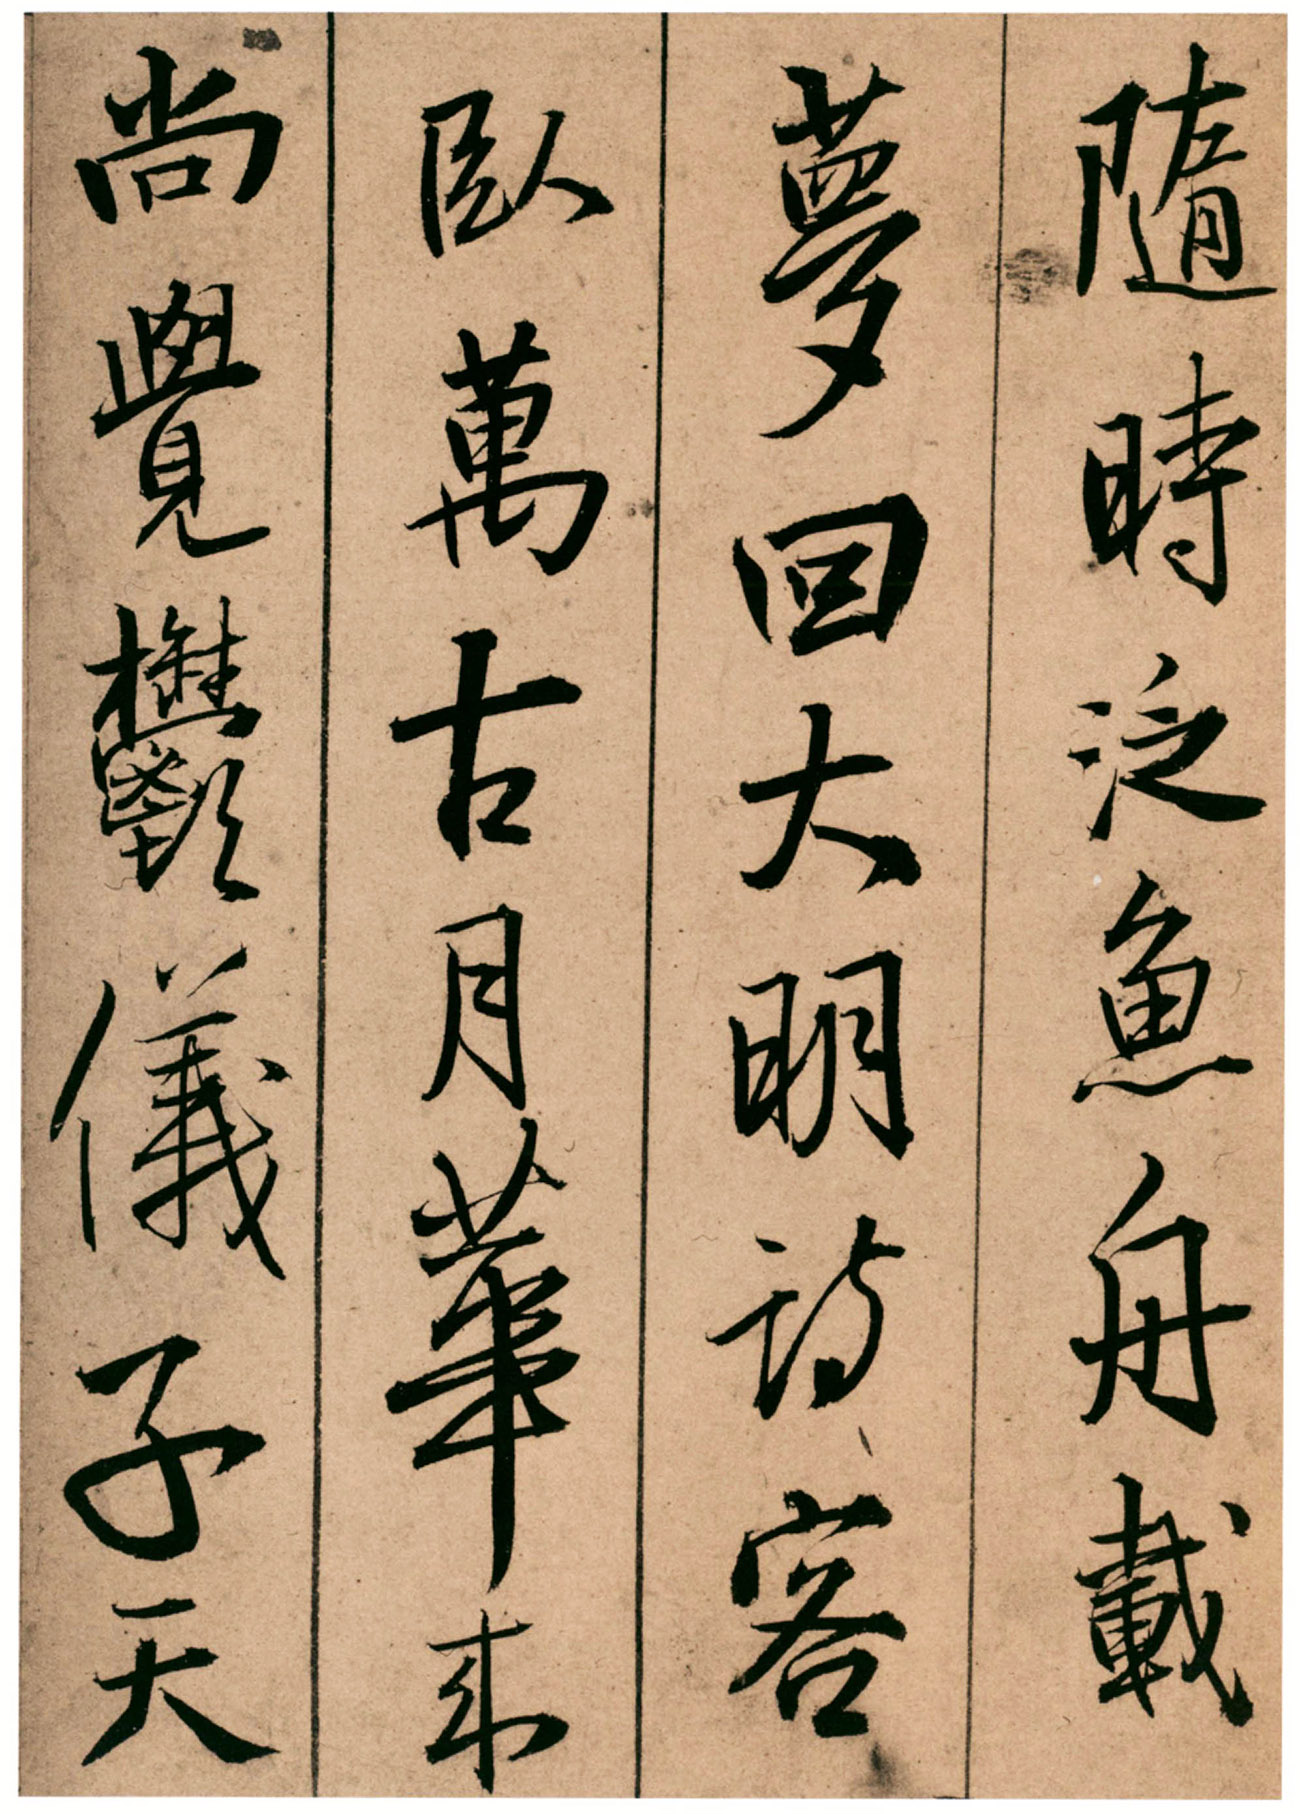 隨時泛魚舟載
夢回大明詩客
臥萬古月華來
尚覺鬱儀子天